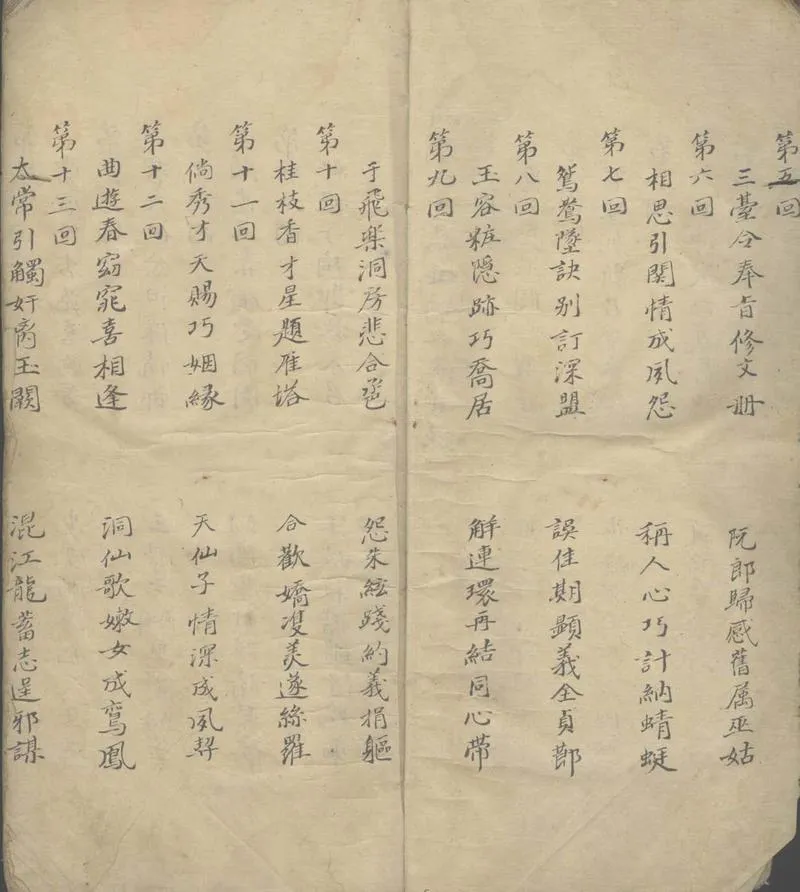 第五回
三臺令奉旨修文册 阮郎歸感舊属巫姑
第六回
相思引関情成夙怨 稱人心巧計納蜻蜓
第七回
鴛鴦墜訣别訂深盟 誤佳期顕義全貞節
第八回
玉容粧隠跡巧喬居 解連環再結同心帶
第九回
于飛樂洞房悲合卺 怨朱絃踐約義捐軀
第十回
桂枝香才星題雁塔 合歡嬌凄美遂絲羅
第十一回
倘秀才天賜巧姻緣 天仙子情深成夙契
第十二回
曲遊春窈窕喜相逢 洞仙歌嫩女成鸾鳳
第十三回
太常引觸奸离玉闕 混江龍蓄志逞邪謀